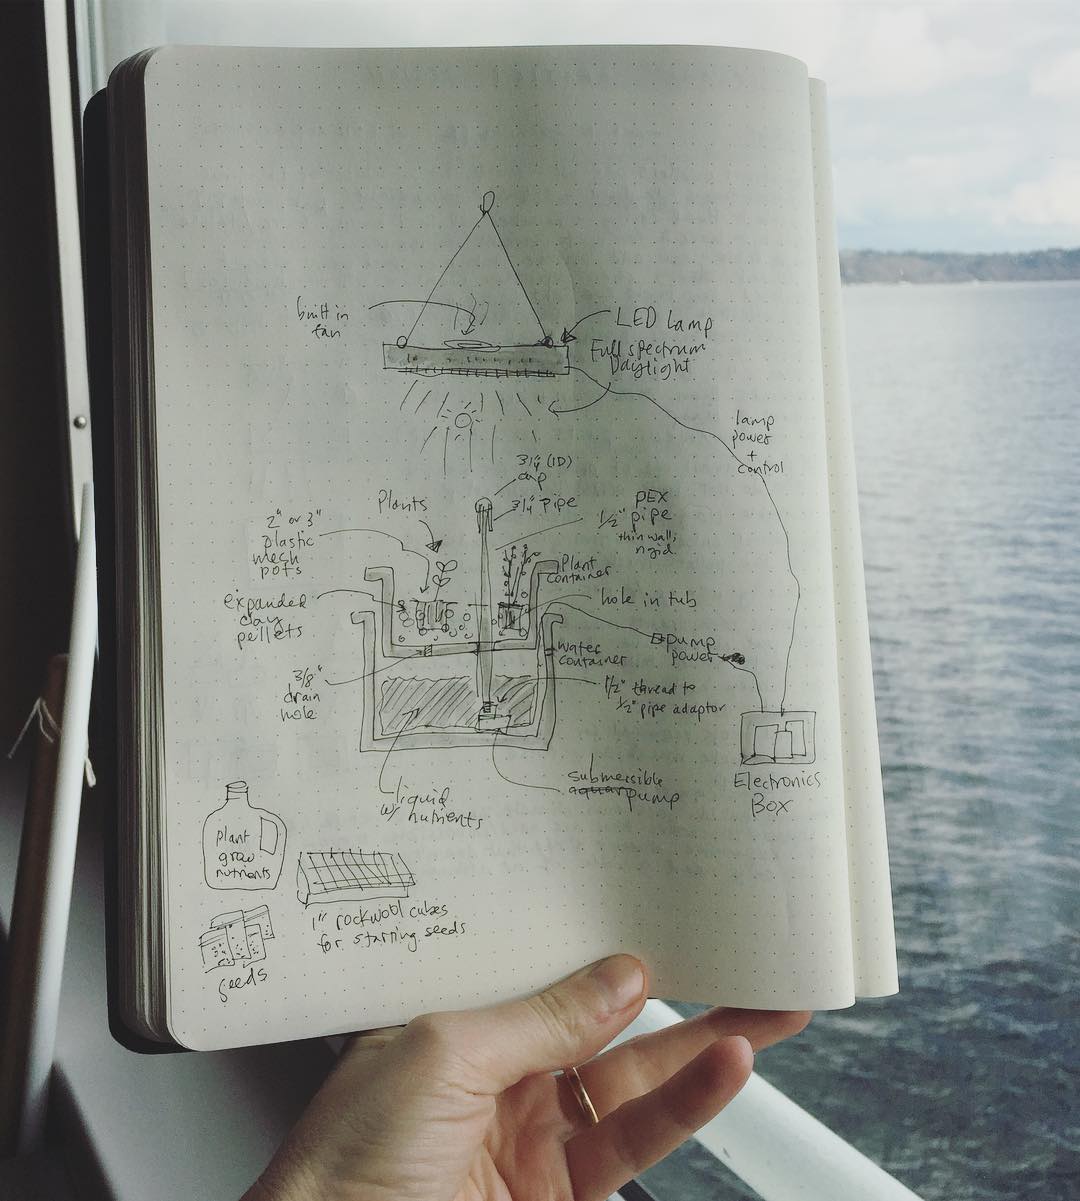 built in
fan
LED lamp
Full spectrum
Daylight
lamp
power
+
control
3/4" (ID)
cap
3/4" pipe
PEX
1/2" pipe
thin wall,
rigid
Plants
2" or 3"
plastic
mech
pots
Plant
container
expanded
clay
pellets
hole in tub
pump
power
water
container
3/8"
drain
hole
1/2" thread to
1/2" pipe adaptor
submersible
aquar pump
liquid
w/ nutrients
Electronics
Box
plant
grow
nutrients
1" rockwool cubes
for starting seeds
seeds